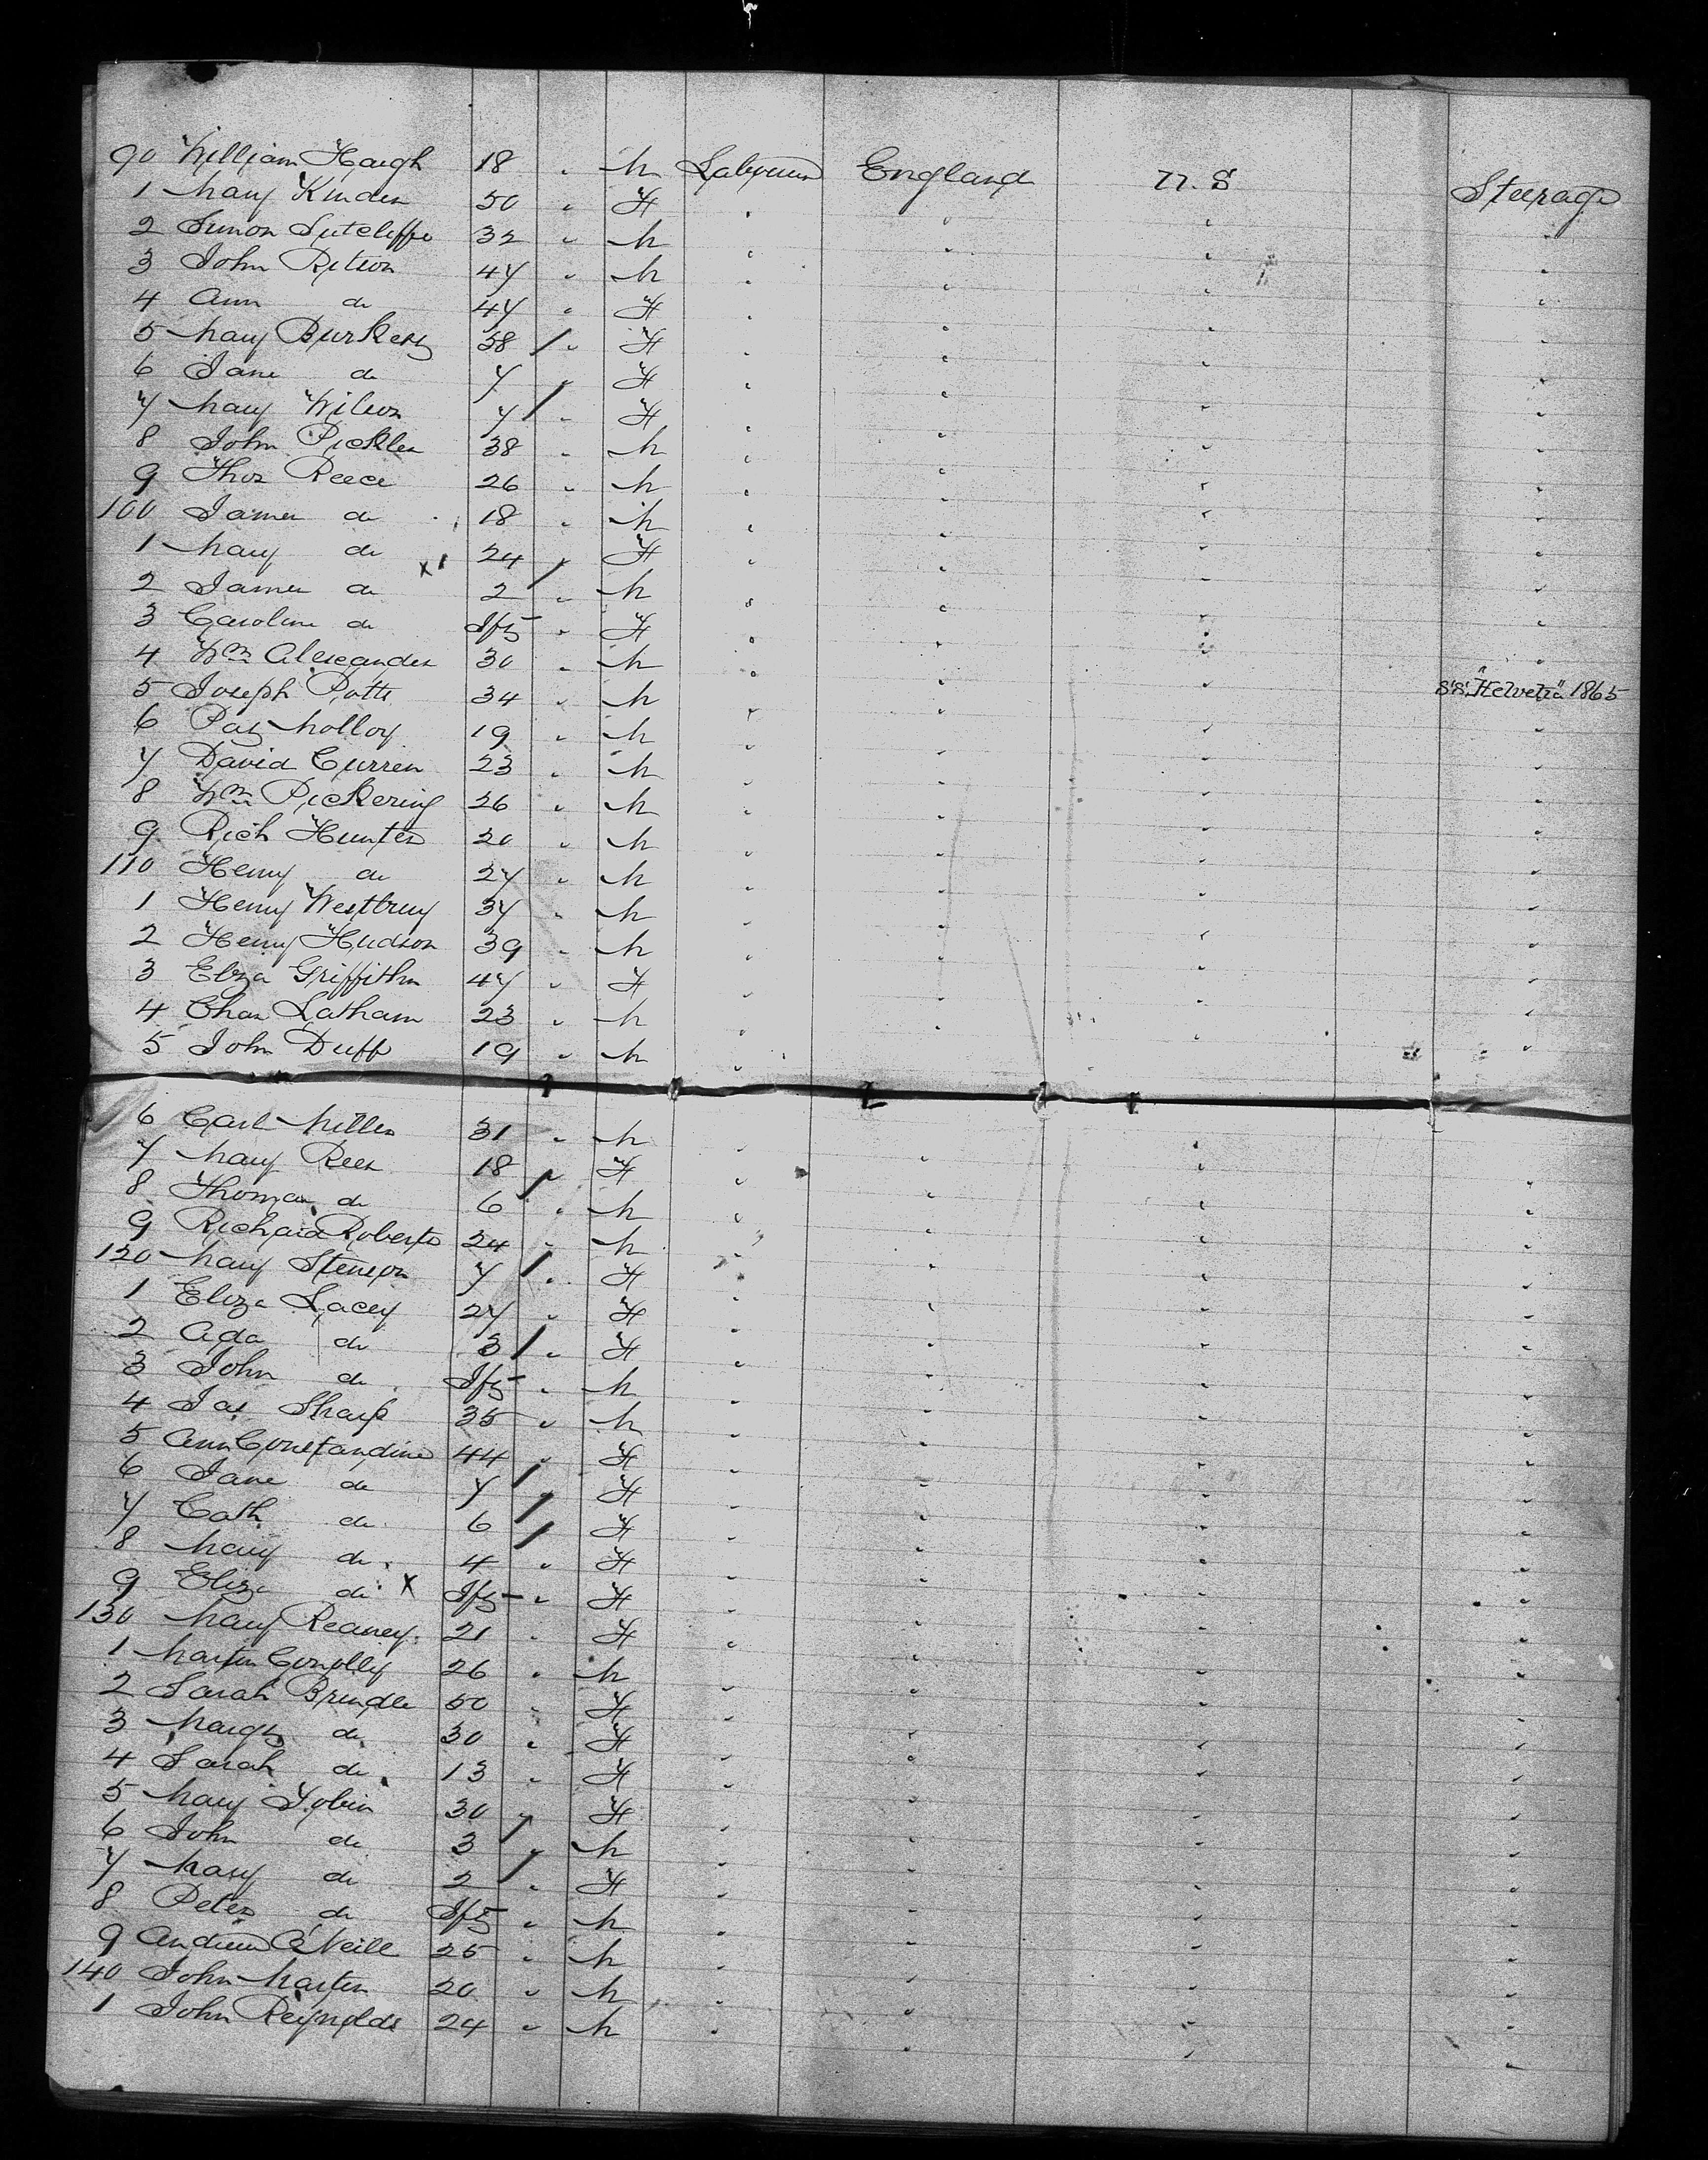 90 William Haigh 18 " M Labourer England U.S Steerage
1 Mary Kinder 50 " F " " " "
2 Simon Sutcliffe 32 " M " " " "
3 John Ritson 47 " M " " " "
4 Ann do 47 " F " " " "
5 Mary 38 " F " " " "
6 Jane do 7 " F " " " "
7 Mary Wilson 7 " F " " " "
8 John Pickles 38 " M " " " "
9 Thos Reece 26 " M " " " "
100 James do 18 " M " " " "
1 Mary do 24 " F " " " "
2 James do x 2 " M " " " "
3 Caroline do Inft " F " " " "
4 Wm Alexander 30 " M " " " "
5 Joseph Potts 34 " M " " " S.S. "Helvetia" 1865
6 Pat Molloy 19 " M " " " "
7 David Curren 23 " M " " " "
8 Wm Pickering 26 " M " " " "
9 Rich Hunter 20 " M " " " "
110 Henry do 27 " M " " " "
1 Henry Westbury 37 " M " " " "
2 Henry Hudson 39 " M " " " "
3 Eliza Griffiths 47 " F " " " "
4 Chas Latham 23 " M " " " "
5 John Duff 19 " M " " " "
6 Carl Miller 31 " M " " " "
7 Mary Rees 18 " F " " " "
8 Thomas do 6 " M " " " "
9 Richard Roberts 24 " M " " " "
120 Mary Stenson 7 " F " " " "
1 Eliza Lacey 27 " F " " " "
2 Ada do 3 " F " " " "
3 John do Inft " M " " " "
4 Jas Sharp 35 " M " " " "
5 Ann Constandine 44 " F " " " "
6 Jane do 7 " F " " " "
7 Cath do 6 " F " " " "
8 Mary do 4 " F " " " "
9 Eliza do x Inft " F " " " "
130 Mary Reaney 21 " F " " " "
1 Martin Conolly 26 " M " " " "
2 Sarah Brindle 50 " F " " " "
3 Margt do 30 " F " " " "
4 Sarah do 13 " F " " " "
5 Mary Tobin 30 " F " " " "
6 John do 3 " M " " " "
7 Mary do 2 " F " " " "
8 Peter do Inft " M " " " "
9 Andrew O'Neill 25 " M " " " "
140 John Martin 20 " M " " " "
1 John Reynolds 24 " M " " " "